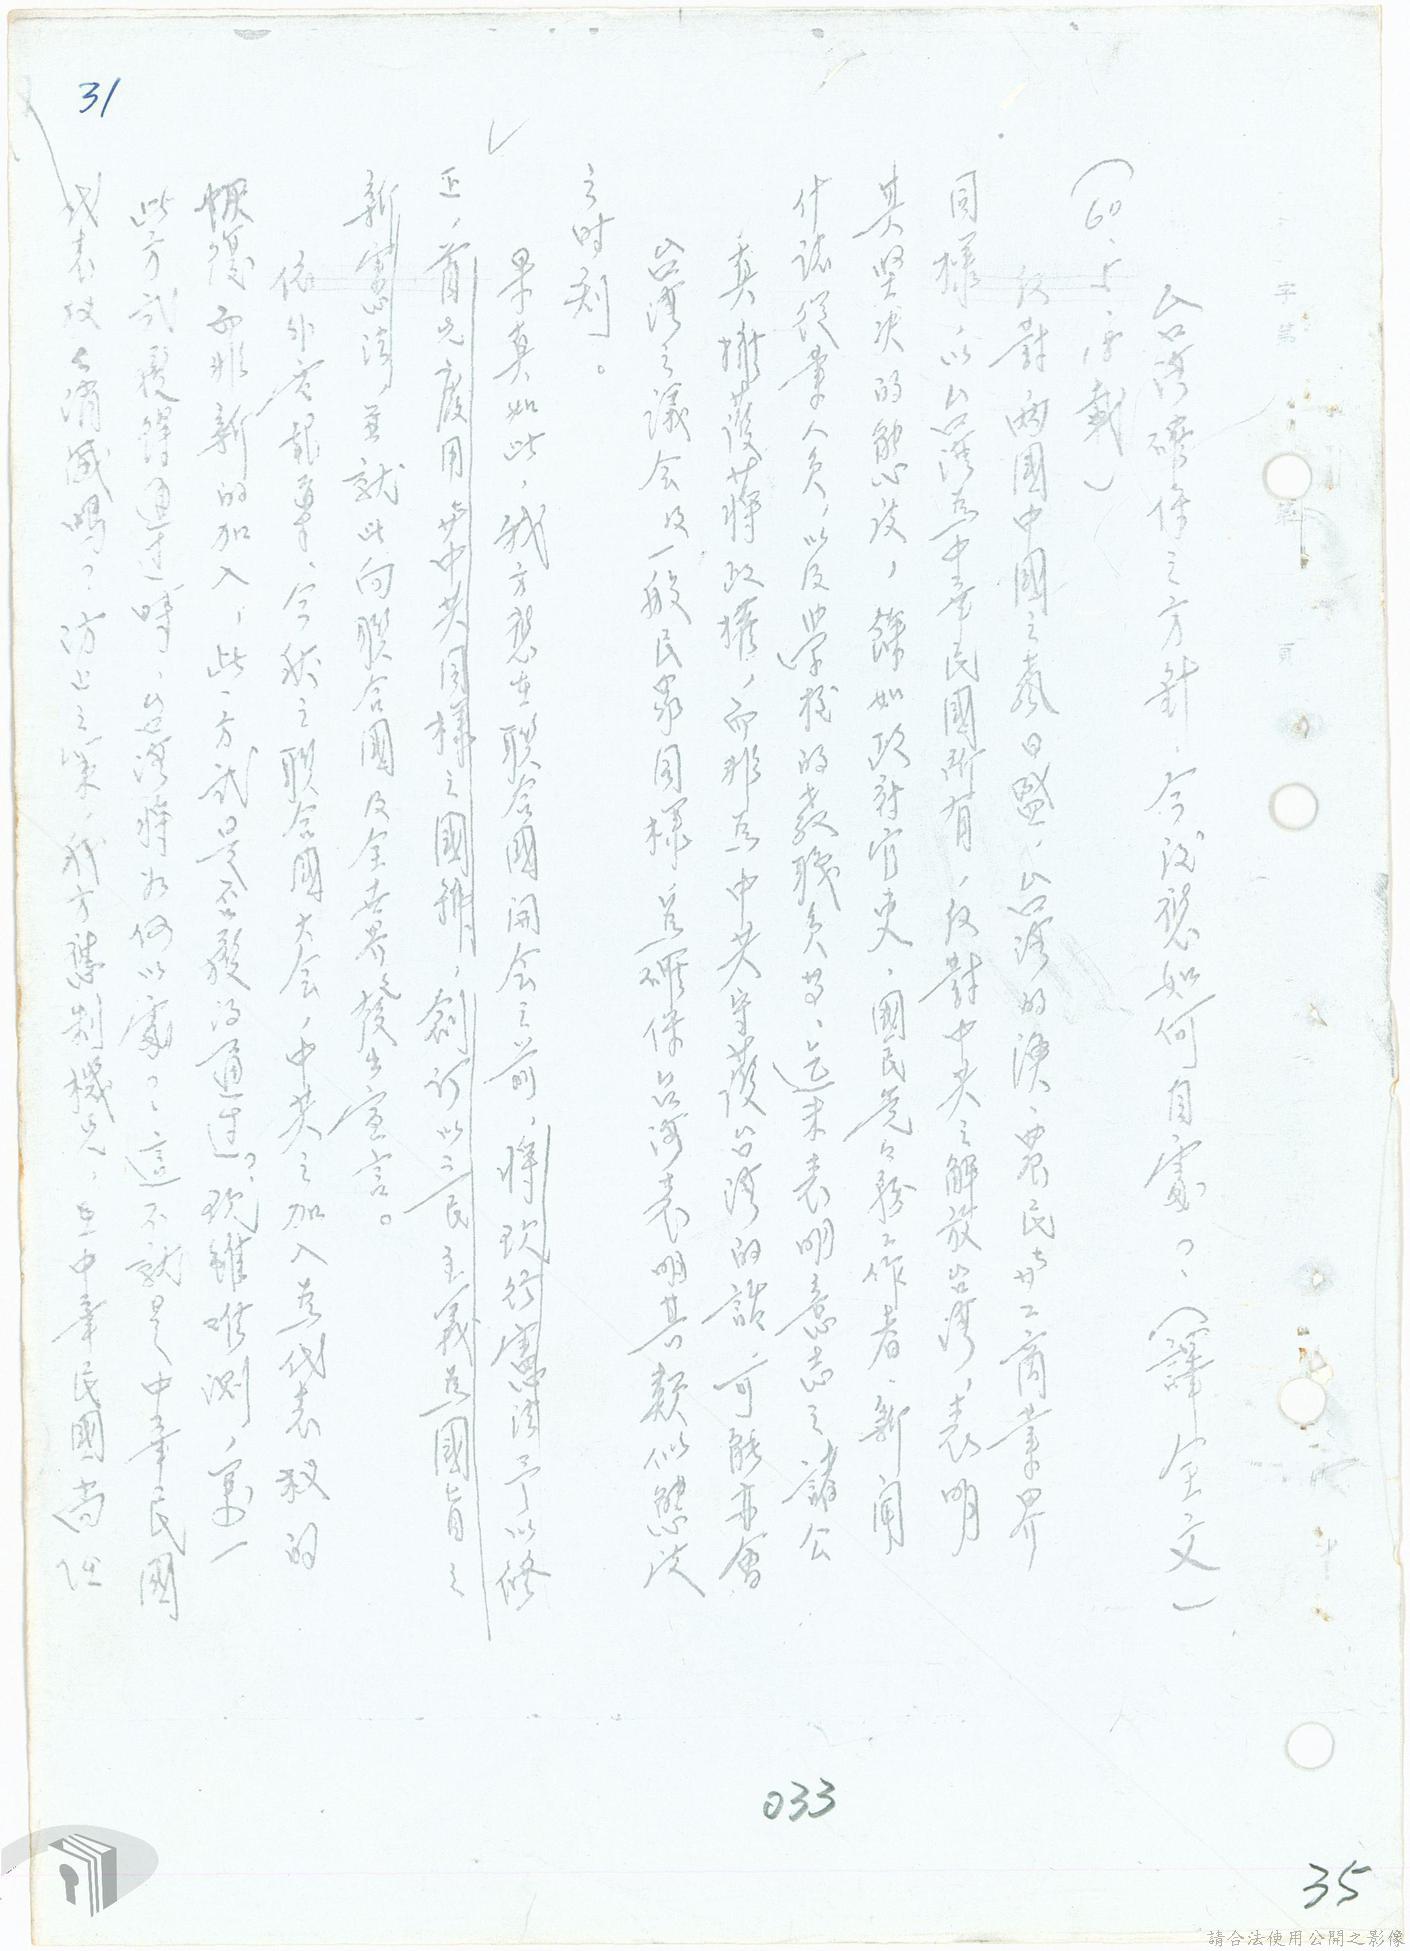 31
台灣確保之方針，今後想如何自處？（譯全文）
（60、5、譯載）
反對兩國中國之氣日盛，台灣的漁、農民與工商業界
同樣，以台灣為中華民國所有，反對中共之解放台灣，表明
其堅決的態度，餘如政府官吏、國民黨黨務工作者、新聞
什誌從業人員，以及學校的教職員等、迄未表明意志之諸公
真擁護蔣政權，而非為中共守護台灣的話，可能亦會
台灣之議会及一般民眾同樣為確保台灣表明其類似態度
之时刻。
果真如此，我方想在联合國開会之前，將現行憲法予以修
正，首先廢用與中共同樣之國號，創訂以三民主義為國旨之
新憲法並就此向联合國及全世界發出宣言。
依外電報導、今秋之联合國大会，中共之加入為代表权的
恢復而非新的加入，此一方式是否獲得通过？現雖唯測，萬一
此方式獲得通过時，台灣將如何以處？這不就是中華民國
代表权之消滅嗎？防止之策，我方應制機先，在中華民國尚短
字第 號 頁
033
35
請合法使用公開之影像